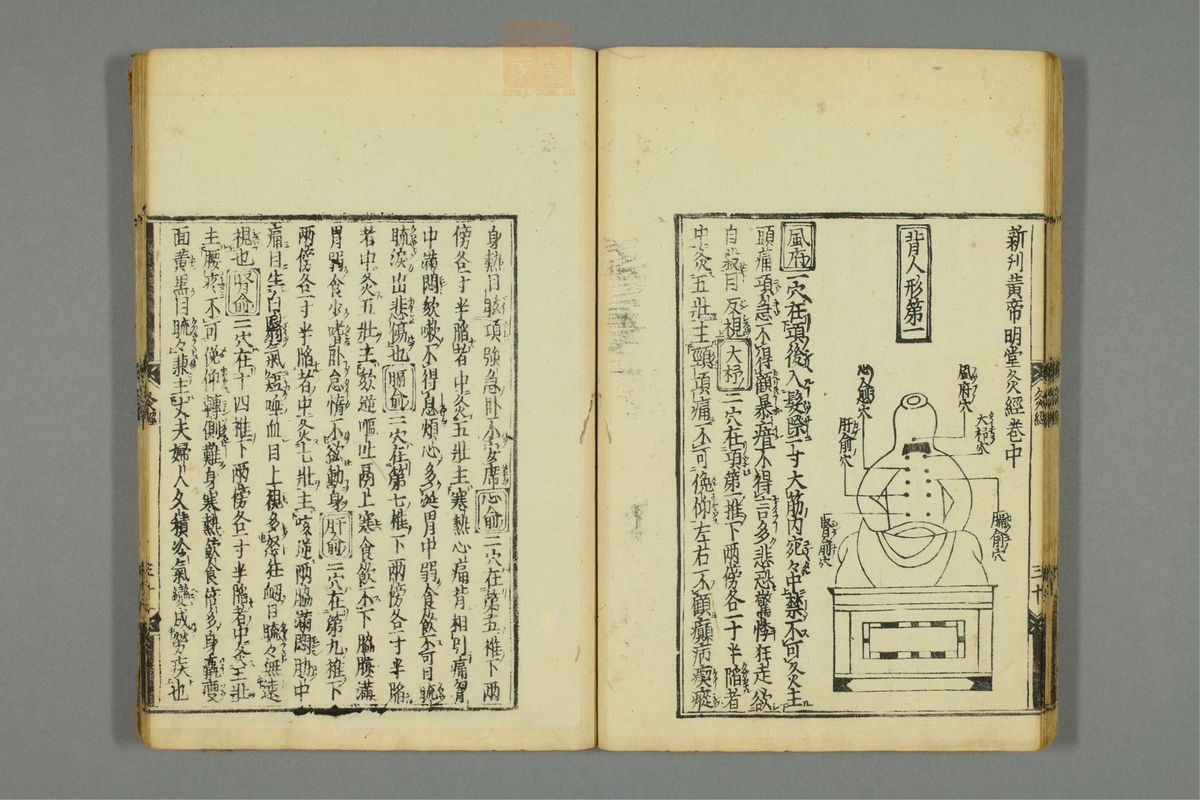 新刊黄帝明堂灸經卷中
背人形第一
風府穴
大杼穴
心俞穴
肝俞穴
膈俞穴
腎俞穴
風府一穴在項後入髮際一寸大筋内宛々中禁不可灸主
頭痛項急不得顧暴瘖不得言多悲恐驚悸狂走欲
自殺目反視大杼二穴在項第一椎下兩傍各一寸半陷者
中灸五壯主頸項痛不可俛仰左右不顧癲病瘈瘲
身熱目眩項強急卧不安席心俞二穴在第五椎下兩
傍各一寸半陷者中灸五壯主寒熱心痛背相引痛胷
中滿悶欬嗽不得息煩心多涎胃中弱食飲不可目䀮
䀮淚出悲傷也膈俞二穴在第七椎下兩傍各一寸半陷
者中灸五壯主欬逆嘔吐鬲上寒食飲不下脇腹滿
胃弱食少嗜卧怠惰不欲動身肝俞二穴在第九椎下
兩傍各一寸半陷者中灸七壯主咳逆兩脇滿悶肋中
痛目生白翳氣短唾血目上視多怒狂衂目䀮々無遠
視也腎俞二穴在十四椎下兩傍各一寸半陷者中灸五壯
主腰疼不可俛仰轉側難身寒熱飲食倍多身羸瘦
面黄黑目䀮々兼主丈夫婦人久積冷氣變成勞疾也
灸經
三十
zysj.com.cn